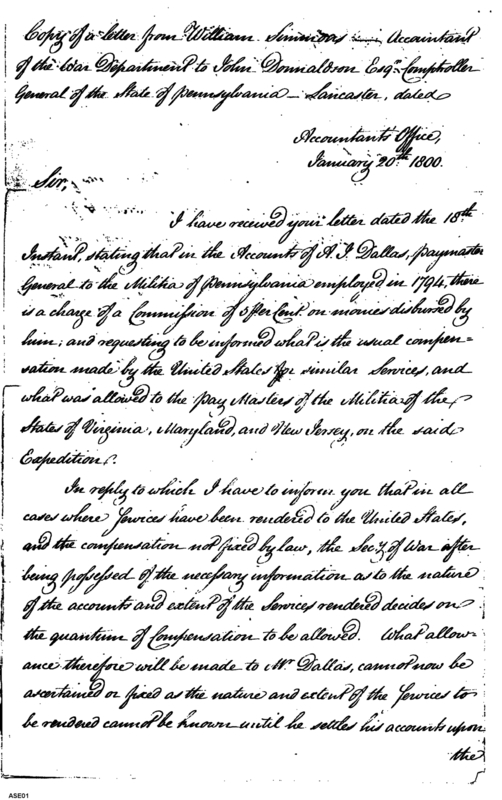 Copy of a letter from William Simmons Accountant
of the War Department to John Donnaldson Esqr. Comptroller
General of the State of Pennsylvania - Lancaster, dated
Accountants Office,
January 20th 1800.
Sir,
I have received your letter dated the 18th
Instant, stating that in the Accounts of A. J. Dallas, paymaster
General to the Militia of Pennsylvania employed in 1794, there
is a charge of a Commission of 5 Per Cent. on monies disbursed by
him; and requesting to be informed what is the usual compen=
sation made by the United States for similar Services, and
what was allowed to the pay Masters of the Militia of the
States of Virginia, Maryland, and New Jersey, on the said
Expedition.
In reply to which I have to inform you that in all
cases where Services have been rendered to the United States,
and the compensation not fixed by law, the Secy. of War after
being possessed of the necessary information as to the nature
of the accounts and extent of the Services rendered decides on
the quantum of Compensation to be allowed. What allow=
ance therefore will be made to Mr Dallas, cannot now be
ascertained or fixed as the nature and extent of the Services to
be rendered cannot be known until he settles his accounts upon
the
ASE01